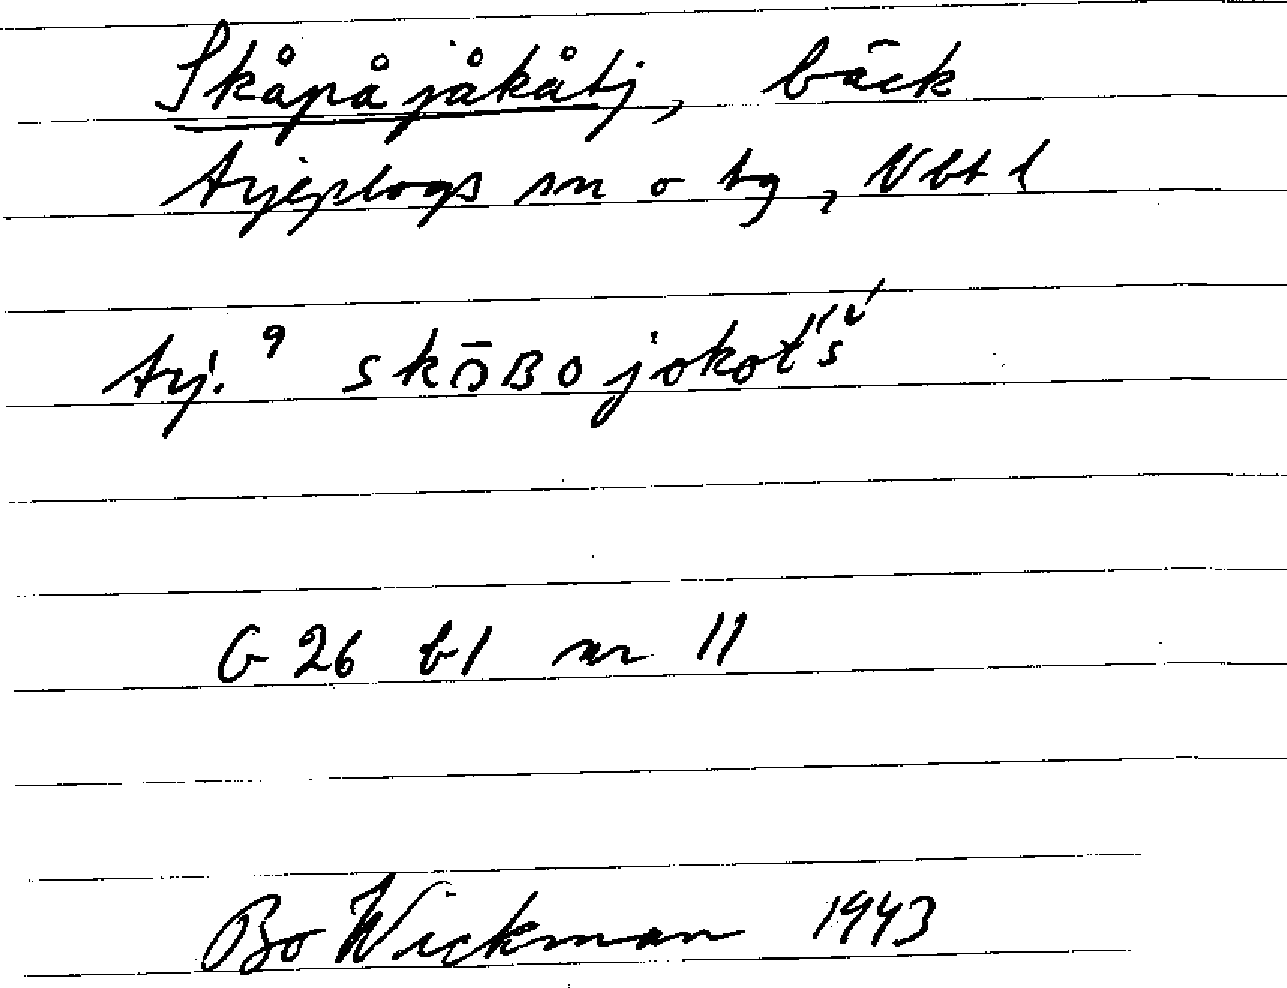 Skåpåjåkåtj, bäck
Arjeplogs sn o tg, Vbt l
Arj. 9 skɔ̄ʙojokot́ś
G 26 b1 nr 11
Bo Wickman 1943